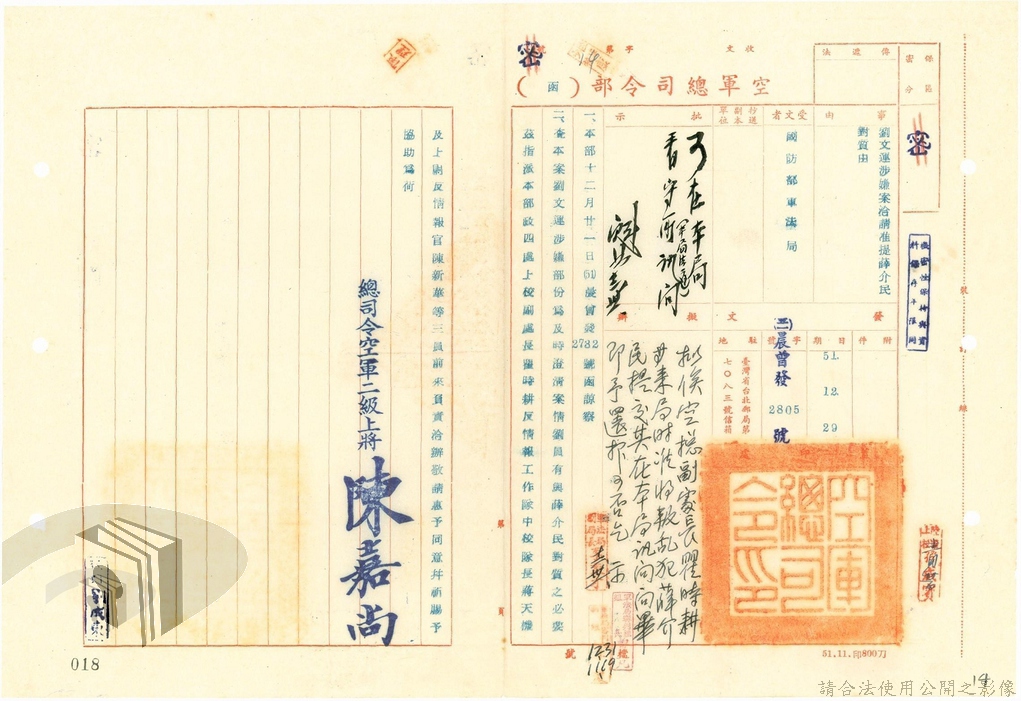 保密
區分
密
傳遞法
收文 字第 號
空軍總司令部(函)
密
事由
劉文運涉嫌案洽請准提薛介民
對質由
受文者
國防部軍法局
抄送
副本
單位
批示
可在本局
看守所訊問
附件
日期
51. 12. 29
發文
字號
(三)晨曾發
2805
號
駐地
臺灣省台北郵局第
七〇八三號信箱
擬辦
擬俟空總副處長瞿時耕
等來局時准將叛亂犯薛介
民提交其在本局訊問問畢
即予還押可否乞示
空軍總司令部印
一、本部十二月廿一日(51)晨曾發2782號函諒察
二、查本案劉文運涉嫌部份為及時澄清案情劉員有與薛介民對質之必要
茲指派本部政四處上校副處長瞿時耕反情報工作隊中校隊長蔣天擔
及上尉反情報官陳新華等三員前來負責洽辦敬請惠予同意并祈賜予
協助為荷
總司令空軍二級上將陳嘉尚
檔號
1231
1119
51.11.印800刀
裝
線
018
14
請合法使用公開之影像